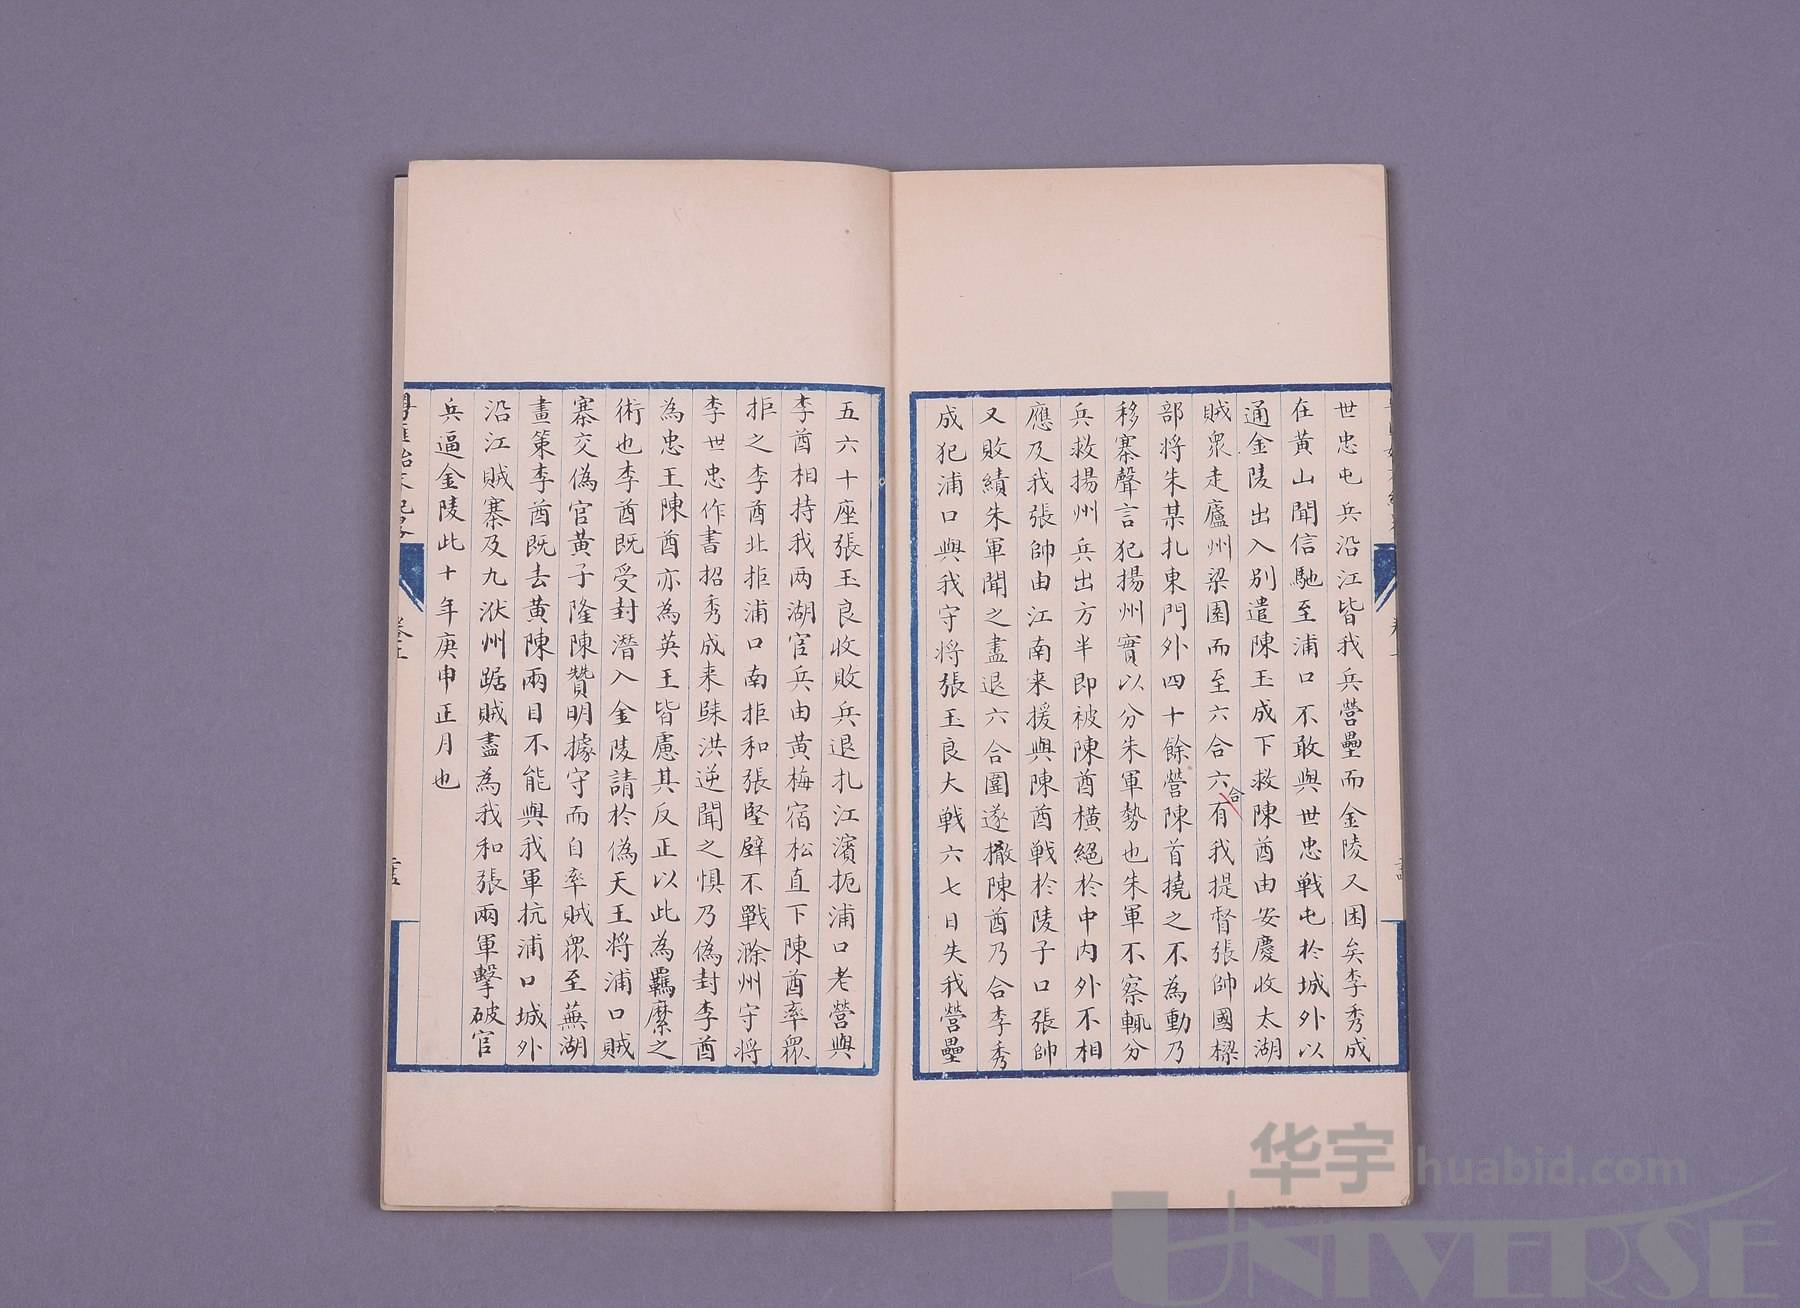 世忠屯兵沿江皆我兵營壘而金陵又困矣李秀成
在黃山聞信馳至浦口不敢與世忠戰屯於城外以
通金陵出入別遣陳玉成下救陳酋由安慶收太湖
賊眾走廬州梁園而至六合六有我提督張帥國樑
合
部將朱某扎東門外四十餘營陳首撓之不為動乃
移寨聲言犯揚州實以分朱軍勢也朱軍不察輒分
兵救揚州兵出方半即被陳酋橫絕於中內外不相
應及我張帥由江南来援與陳酋戰於陵子口張帥
又敗績朱軍聞之盡退六合圍遂撤陳酋乃合李秀
成犯浦口與我守將張玉良大戰六七日失我營壘
五六十座張玉良收敗兵退扎江濱扼浦口老營與
李酋相持我两湖官兵由黃梅宿松直下陳酋率眾
拒之李酋北拒浦口南拒和張堅壁不戰滁州守將
李世忠作書招秀成来歸洪逆聞之惧乃偽封李酋
為忠王陳酋亦為英王皆慮其反正以此為羈縻之
術也李酋既受封潛入金陵請於偽天王將浦口賊
寨交偽官黃子隆陳贊明據守而自率賊眾至蕪湖
畫策李酋既去黃陳兩目不能與我軍抗浦口城外
沿江賊寨及九洑州踞賊盡為我和張兩軍擊破官
兵逼金陵此十年庚申正月也
華宇 huabid.com
UNIVERSE